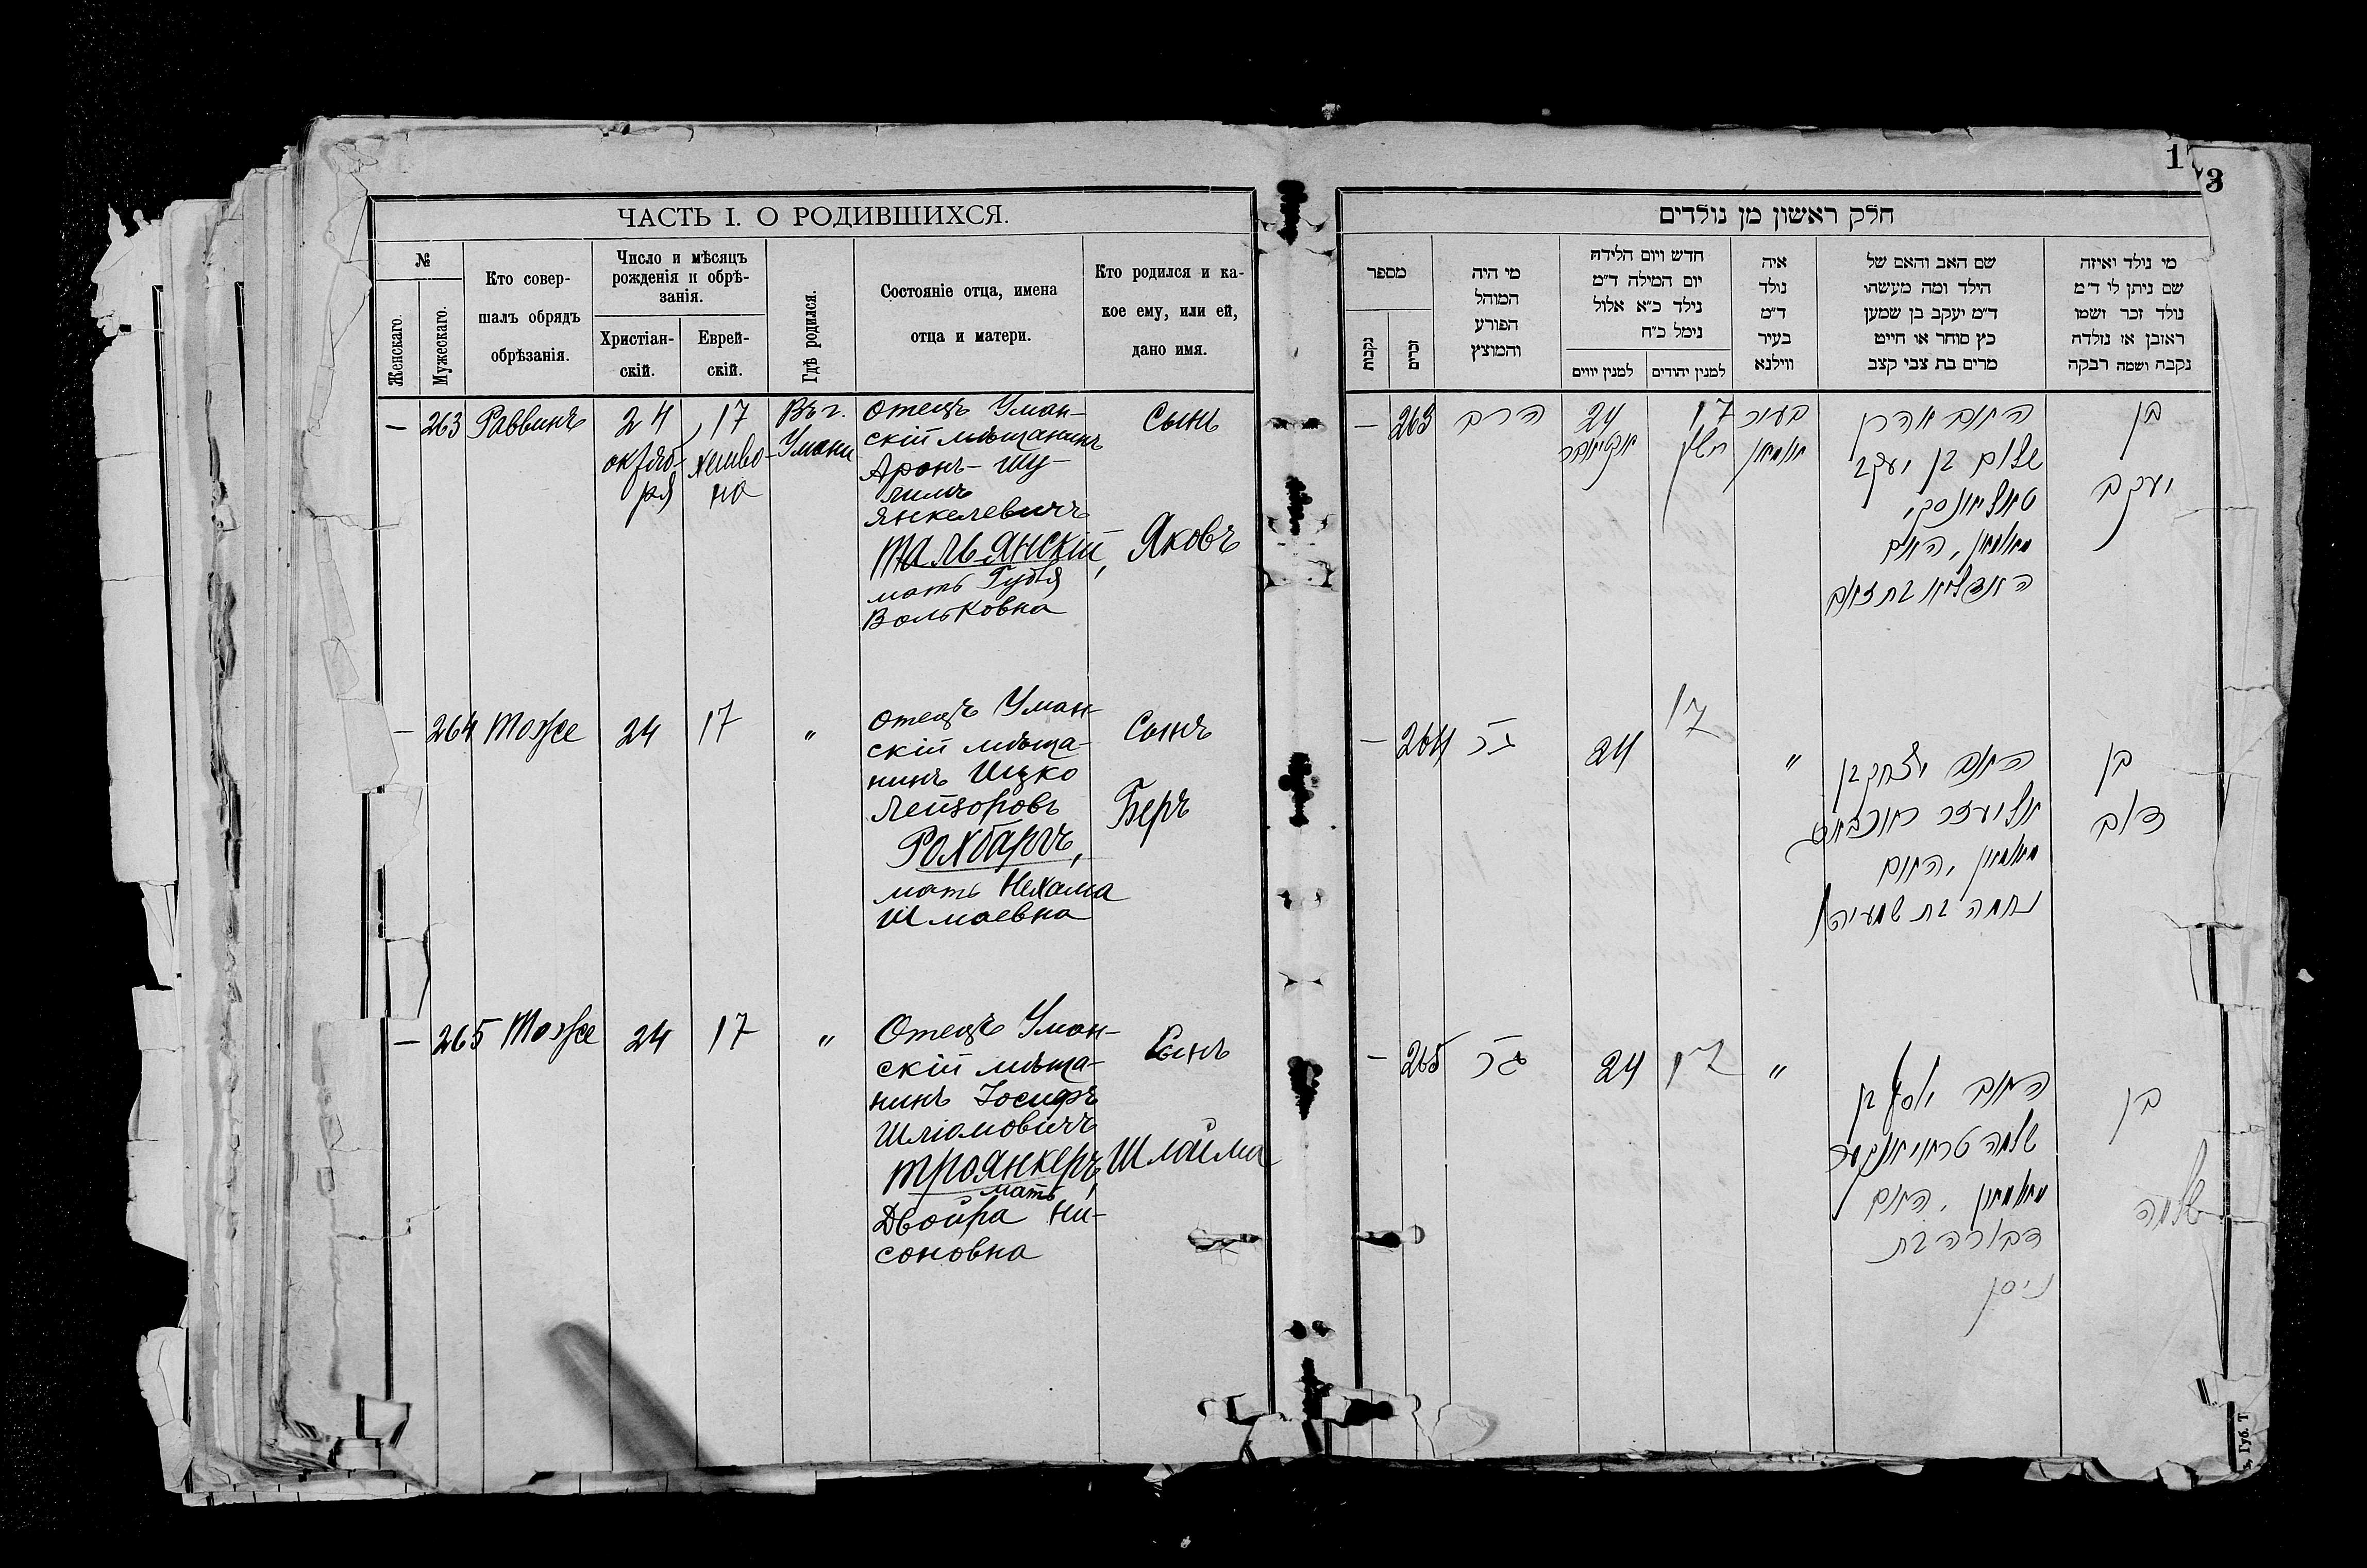 1
3
ЧАСТЬ I. О РОДИВШИХСЯ.
№
Женскаго.
Мужескаго.
Кто совер-
шалъ обрядъ
обрѣзанія.
Число и мѣсяцъ
рожденія и обрѣ-
занія.
Христіан-
скій.
Еврей-
скій.
Гдѣ родился.
Состояніе отца, имена
отца и матери.
Кто родился и ка-
кое ему, или ей,
дано имя.
— 263 Раввинъ
24
октяб-
ря
17
хешво-
на
Въ г.
Умани
отецъ Уман-
скій мѣщанинъ
Аронъ-Шу-
лимъ
Янкелевичъ
Тальянскій,
мать Гудля
Вольковна
Сынъ
Яковъ
— 264 Тоже 24 17 "
отецъ Уман-
скій мѣща-
нинъ Ицко
Лейзоровъ
Рохбаргъ,
мать Нехама
Шмаевна
Сынъ
Беръ
— 265 Тоже 24 17 "
Отецъ Уман-
скій мѣща-
нинъ Іосифъ
Шліомовичъ
Троянкеръ,
мать
Двойра Ни-
соновна
Сынъ
Шлойма
חלק ראשון מן נולדים
מספר
נקבות
זכרים
מי היה
המוהל
הפורע
והמוצץ
חדש ויום הלידה
יום המילה ד״מ
נילד כ״א אלול
נימל כ״ח
למנין יווים
למנין יהודים
איה
נולד
ד״מ
בעיר
ווילנא
שם האב והאם של
הילד ומה מעשהו
ד״מ יעקב בן שמען
כץ סוחר או חייט
מרים בת צבי קצב
מי נילד ואיזה
שם ניתן לו ד״מ
נולד זכר ושמו
ראובן או נולדה
נקבה ושמה רבקה
— 263 הרב
24
אקטיאבר
17
חשון
בעיר
אומאן
האב אהרן
שלום בן יעקב
טאליאנסקי
מאומאן, האם
בן
יעקב
— 264 24 17 "
האב יצחק בן
אליעזר
מאומאן, האם
נחמה בת שמעיה
בן
דוב
— 265 24 17 "
האב יוסף בן
שלמה טראיאנקער
מאומאן, האם
דבורה בת
ניסן
בן
שלמה
Губ. Т